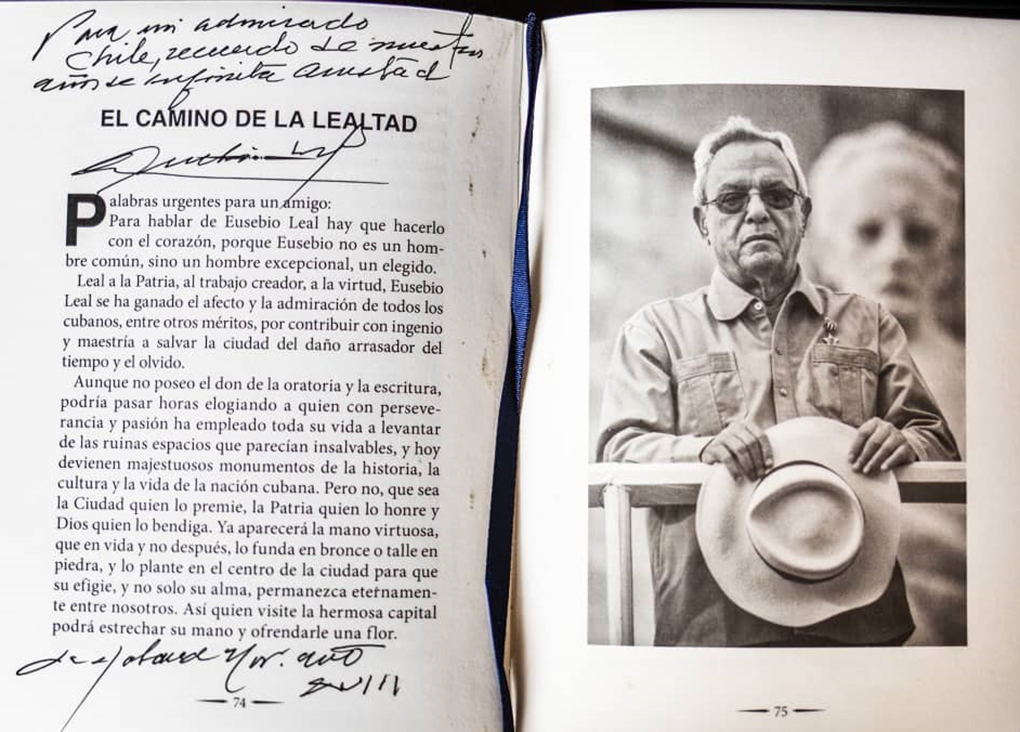 Para mi admirado
Chile, recuerdo de nuestros
años de infinita amistad
EL CAMINO DE LA LEALTAD
Palabras urgentes para un amigo:
Para hablar de Eusebio Leal hay que hacerlo
con el corazón, porque Eusebio no es un hom-
bre común, sino un hombre excepcional, un elegido.
Leal a la Patria, al trabajo creador, a la virtud, Eusebio
Leal se ha ganado el afecto y la admiración de todos los
cubanos, entre otros méritos, por contribuir con ingenio
y maestría a salvar la ciudad del daño arrasador del
tiempo y el olvido.
Aunque no poseo el don de la oratoria y la escritura,
podría pasar horas elogiando a quien con perseve-
rancia y pasión ha empleado toda su vida a levantar
de las ruinas espacios que parecían insalvables, y hoy
devienen majestuosos monumentos de la historia, la
cultura y la vida de la nación cubana. Pero no, que sea
la Ciudad quien lo premie, la Patria quien lo honre y
Dios quien lo bendiga. Ya aparecerá la mano virtuosa,
que en vida y no después, lo funda en bronce o talle en
piedra, y lo plante en el centro de la ciudad para que
su efigie, y no solo su alma, permanezca eternamen-
te entre nosotros. Así quien visite la hermosa capital
podrá estrechar su mano y ofrendarle una flor.
74
75